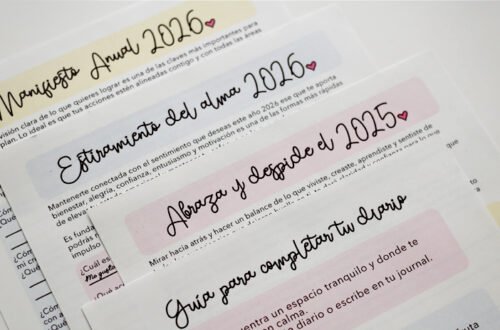 Manifiesto Anual 2026
visión clara de lo que quieres lograr es una de las claves más importantes para
plan. Lo ideal es que tus acciones estén alineadas contigo y con todas las áreas
Estiramiento del alma 2026
Mantenerte conectada con el sentimiento que deseas este año 2026 ese que te aporta
bienestar, alegría, confianza, entusiasmo y motivación es una de las formas más rápidas
de eleva
Es funda
podrás
impulso
¿Cuál es
Me gusta
¿Qué ac
Abraza y despide el 2025
Mirar hacia atrás y hacer un balance de lo que viviste, creaste, aprendiste y sentiste de
Guía para completar tu diario
uentra un espacio tranquilo y donde te
en calma.
o diario o escribe en tu journal.